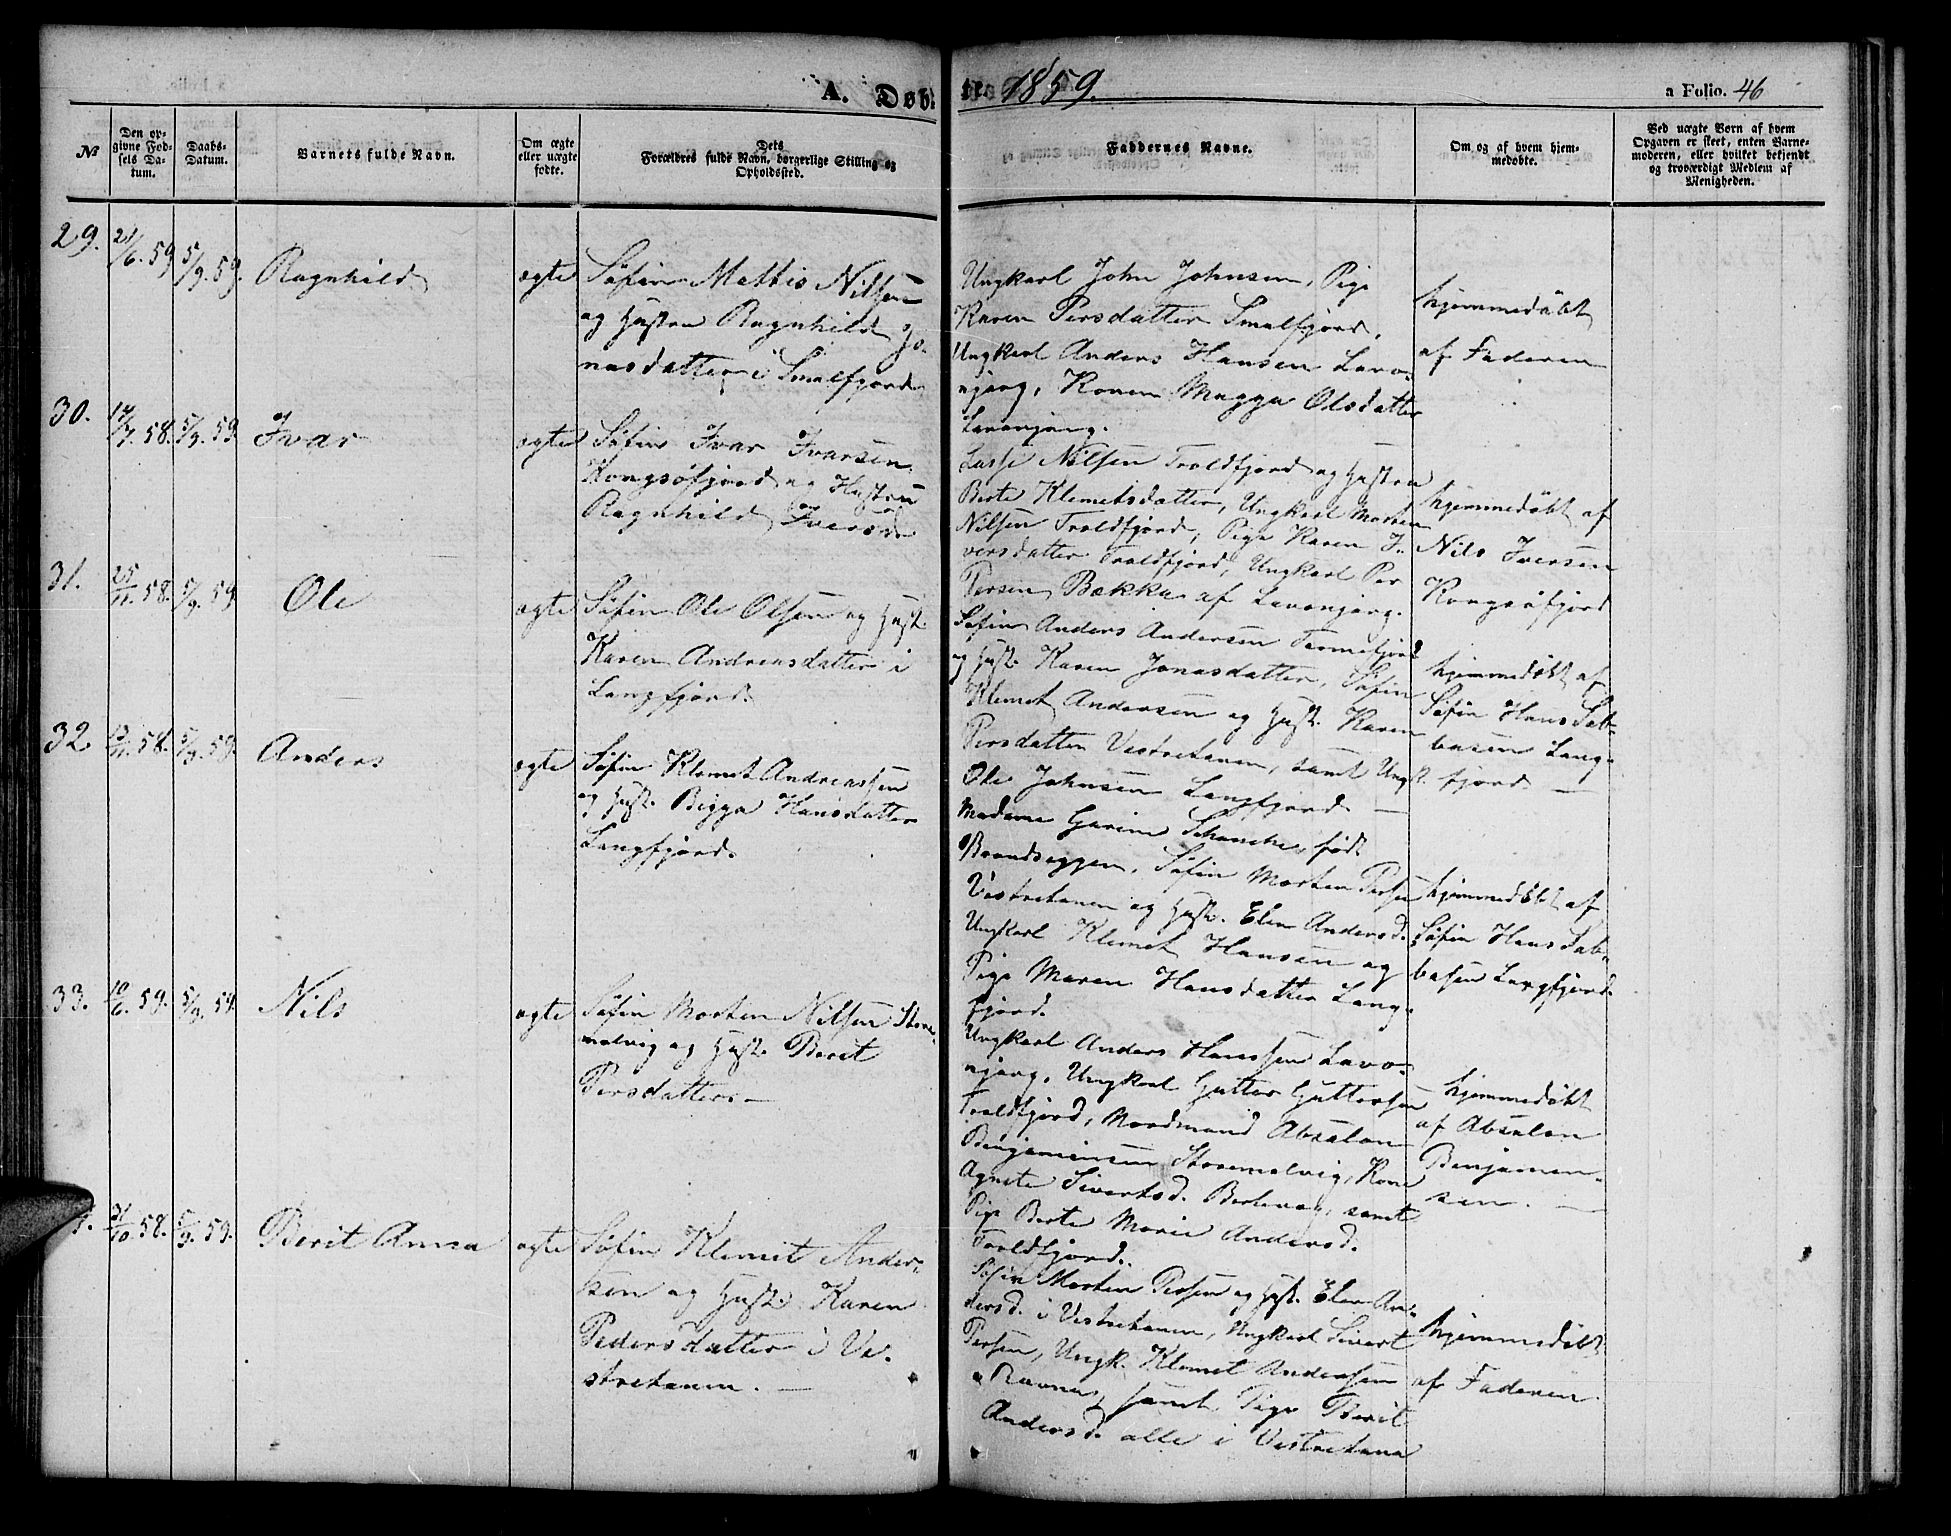 A. Døbte 1859.
a Folio. 46
№
Den opgivne Fødsels Datum.
Daabs-Datum.
Barnets fulde Navn.
Om ægte eller uægte fødte.
Dets Forældres fulde Navn, borgerlige Stilling og Opholdssted.
Faddernes Navne.
Om og af hvem hjemmedøbte.
Ved uægte Børn af hvem Opgaven er skeet, enten Barnemoderen, eller hvilket bekjendt og troværdigt Medlem af Menigheden.
29.
21/6. 59
5/9. 59.
Ragnhild
ægte
Søfin Mathis Nilsen
og Hustru Ragnhild Jo-
nasdatter i Smalfjord
Ungkarl John Johnsen, Pige
Karen Persdatter Smalfjord,
Ungkarl Anders Hansen Lavo-
njarg, Konen Magga Olsdatter
Lavonjarg.
hjemmedøbt
af Faderen
30.
17/7. 58.
5/9. 59
Ivar
ægte
Søfin Ivar Ivarsen
Kongsøfjord og Hustru
Ragnhild Iversd.
Lasse Nilsen Troldfjord og Hustru
Berte Klemetsdatter, Ungkarl Morten
Nilsen Troldfjord, Pige Karen I-
versdatter Troldfjord, Ungkarl Per
Persen Bækka af Lavonjarg.
hjemmedøbt af
Nils Iversen
Kongsøfjord
31.
25/11. 58.
5/9. 59
Ole
ægte
Søfin Ole Olsen og Hust.
Karen Andreasdatter i
Langfjord.
Søfin Anders Andersen Tarmefjord
og Hust. Karen Jonasdatter, Søfin
Klemet Andersen og Hust. Karen
Persdatter Vestretanen, samt Ungk.
Ole Johnsen Langfjord. —
hjemmedøbt af
Søfin Hans Sab-
basen Lang-
fjord —
32.
13/11. 58.
5/9. 59.
Anders
ægte
Søfin Klemet Andreassen
og Hust. Bigga Hansdatter
Langfjord.
Madame Gurine Schanche, født
Brandseggen, Søfin Morten Persen
Vestretanen og Hust. Elen Andersd.
Ungkarl Klemet Hansen og
Pige Maren Hansdatter Lang-
fjord.
hjemmedøbt af
Søfin Hans Sab-
basen Langfjord.
33.
10/6. 59.
5/9. 59.
Nils
ægte
Søfin Morten Nilsen Store-
molvig og Hust. Berit
Persdatter. —
Ungkarl Anders Hanssen Lavo-
njarg, Ungkarl Guttor Guttorsen
Troldfjord, Nordmand Absalon
Benjaminsen Storemolvig, Kone
Agnete Sivertsd. Berlevag, samt
Pige Berte Marie Andersd.
Troldfjord.
hjemmedøbt
af Absalon
Benjamin-
sen. —
31/10. 58.
5/9. 59.
Berit Anna
ægte
Søfin Klemet Ander-
sen og Hust. Karen
Pedersdatter i Ve-
stretanen. —
Søfin Morten Persen og Hust. Elen An-
dersd. i Vestretanen, Ungkarl Sivert
Persen, Ungk. Klemet Andersen
Ravna, samt Pige Berit
Andersd. alle i Vestretana
hjemmedøbt
af Faderen.